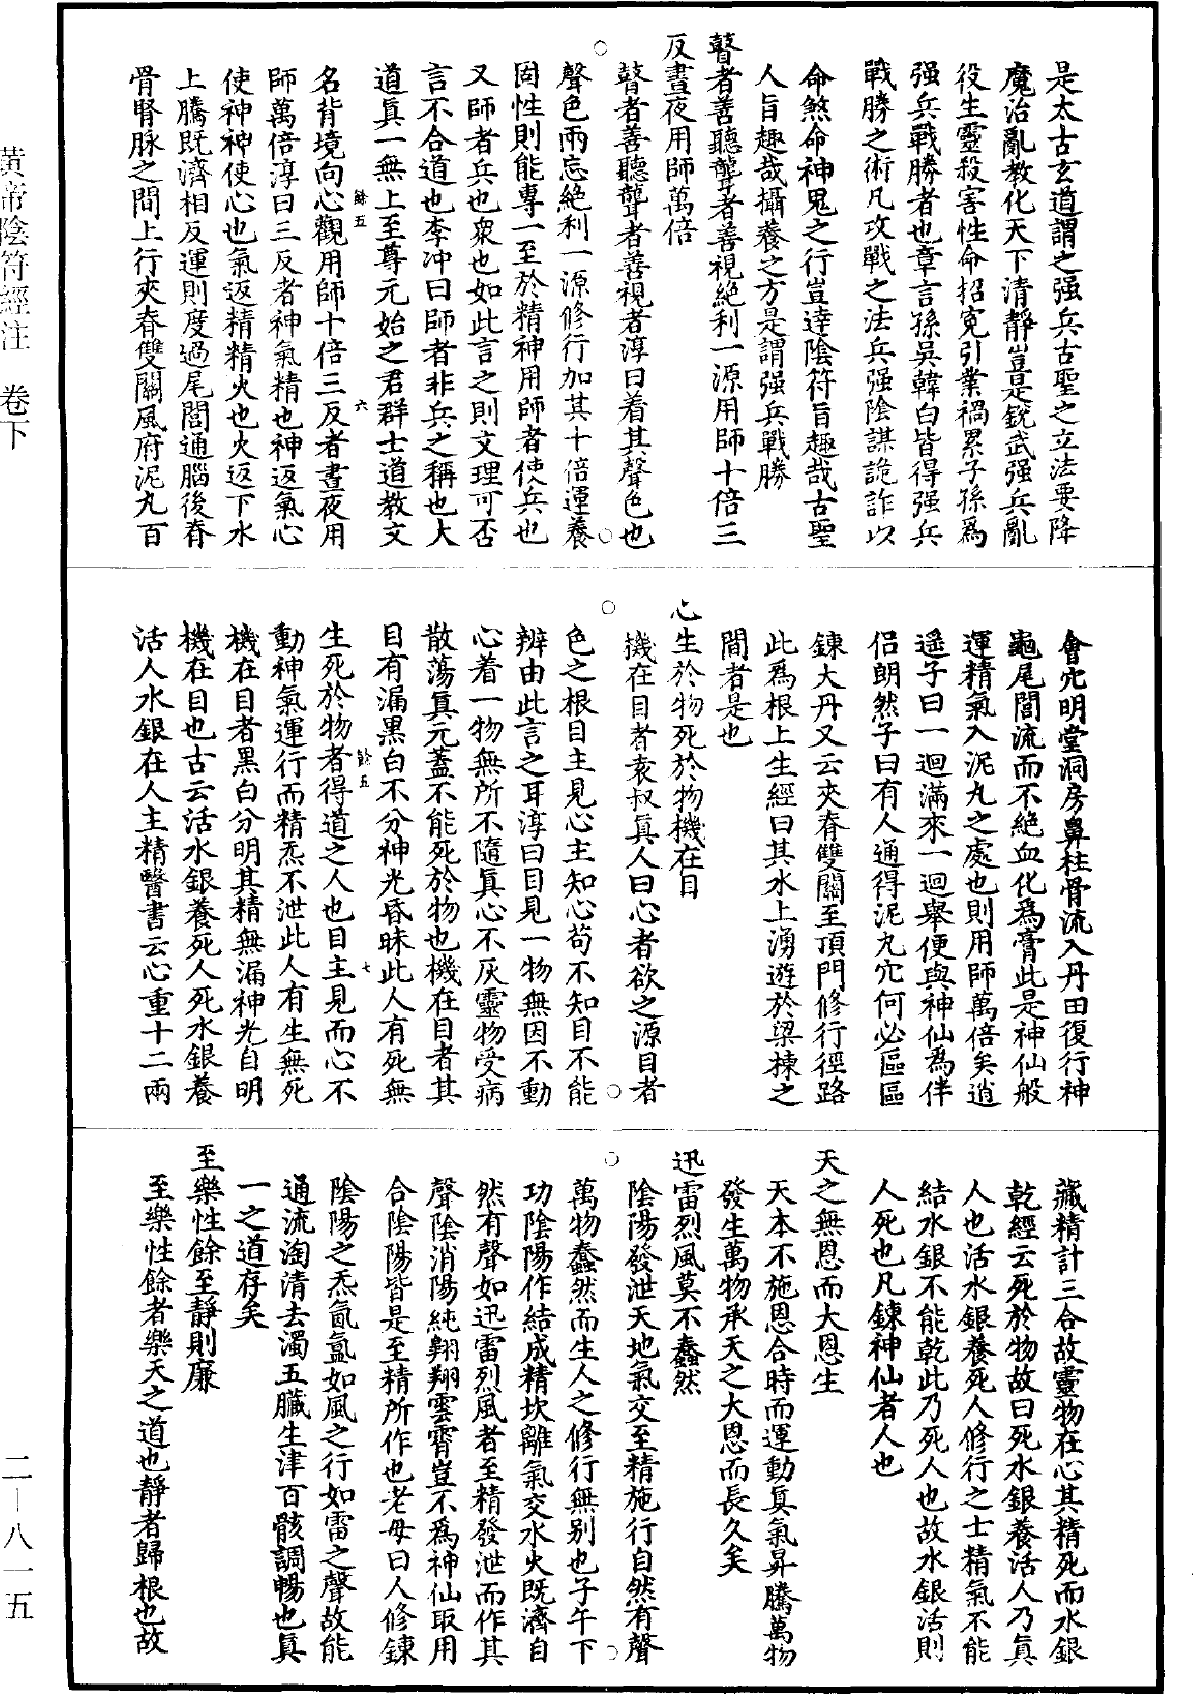 是太古玄道謂之强兵古聖之立法要降
魔治亂教化天下清靜豈是銳武强兵亂
役生靈殺害性命招寃引業禍累子孫爲
强兵戰勝者也章言孫吳韓白皆得强兵
戰勝之術凡攻戰之法兵强陰謀詭詐以
命煞命神鬼之行豈達陰符旨趣哉古聖
人旨趣哉攝養之方是謂强兵戰勝
瞽者善聽聾者善視絕利一源用師十倍三
反晝夜用師萬倍
瞽者善聽聾者善視者淳曰着其聲色也
聲色兩忘絕利一源修行加其十倍運養
固性則能專一至於精神用師者使兵也
又師者兵也衆也如此言之則文理可否
言不合道也李冲曰師者非兵之稱也大
道眞一無上至尊元始之君群士道教文
餘五 六
名背境向心觀用師十倍三反者晝夜用
師萬倍淳曰三反者神氣精也神返氣心
使神神使心也氣返精精火也火返下水
上騰既濟相反運則度過尾閭通腦後脊
骨腎脉之間上行夾脊雙關風府泥丸百
會穴明堂洞房鼻柱骨流入丹田復行神
龜尾閭流而不絕血化爲膏此是神仙般
運精氣入泥丸之處也則用師萬倍矣逍
遥子曰一迴滿來一迴舉便與神仙爲伴
侣朗然子曰有人通得泥丸穴何必區區
鍊大丹又云夾脊雙關至頂門修行徑路
此爲根上生經曰其水上湧遊於梁棟之
間者是也
心生於物死於物機在目
機在目者袁叔真人曰心者欲之源目者
色之根目主見心主知心苟不知目不能
辨由此言之耳淳曰目見一物無因不動
心着一物無所不隨眞心不灰靈物受病
散蕩眞元蓋不能死於物也機在目者其
目有漏黑白不分神光昏昧此人有死無
餘五 七
生死於物者得道之人也目主見而心不
動神氣運行而精炁不泄此人有生無死
機在目者黑白分明其精無漏神光自明
機在目也古云活水銀養死人死水銀養
活人水銀在人主精醫書云心重十二兩
藏精計三合故靈物在心其精死而水銀
乾經云死於物故曰死水銀養活人乃眞
人也活水銀養死人修行之士精氣不能
結水銀不能乾此乃死人也故水銀活則
人死也凡鍊神仙者人也
天之無恩而大恩生
天本不施恩合時而運動眞氣昇騰萬物
發生萬物承天之大恩而長久矣
迅雷烈風莫不蠢然
陰陽發泄天地氣交至精施行自然有聲
萬物蠢然而生人之修行無别也子午下
功陰陽作結成精坎離氣交水火既濟自
然有聲如迅雷烈風者至精發泄而作其
聲陰消陽純翺翔雲霄豈不爲神仙取用
合陰陽皆是至精所作也老母曰人修鍊
陰陽之炁氤氳如風之行如雷之聲故能
通流淘清去濁五臟生津百骸調暢也眞
一之道存矣
至樂性餘至靜則廉
至樂性餘者樂天之道也靜者歸根也故
黄帝陰符經注 卷下
二－八一五